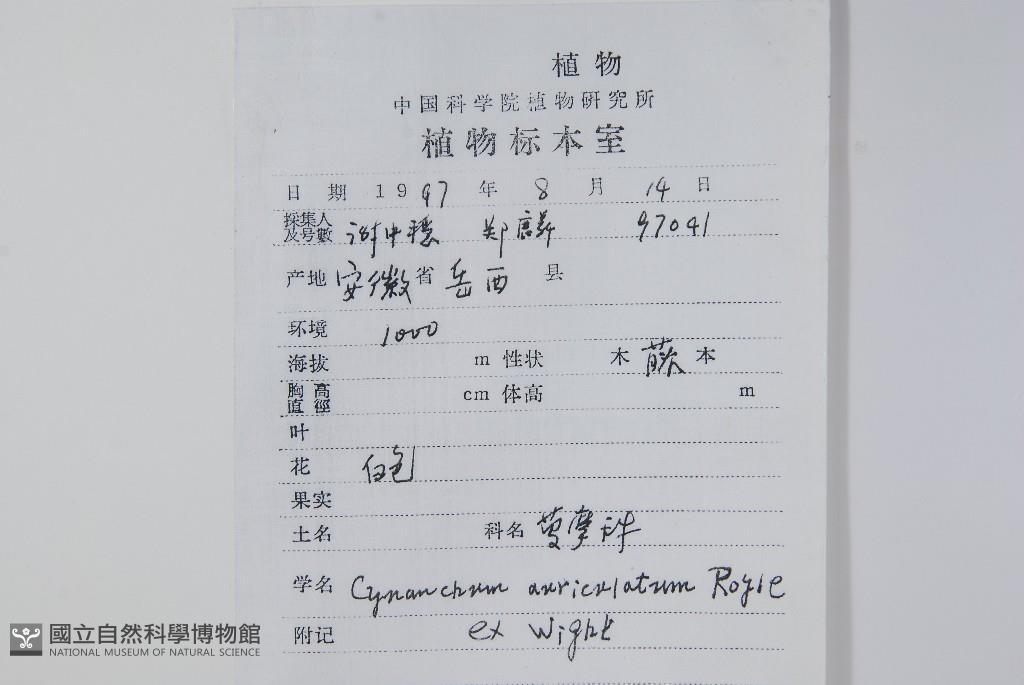 植物
中国科学院植物研究所
植物标本室
日期 1997 年 8 月 14 日
採集人及号數 谢中穩 郑 97041
产地 安徽省 岳西 县
环境 1000
海拔 m 性状 木 藤 本
胸高直徑 cm 体高 m
叶
花 白色
果实
土名 科名 萝摩科
学名 Cynanchum auriculatum Royle
附记 ex Wight
國立自然科學博物館
NATIONAL MUSEUM OF NATURAL SCIENCE